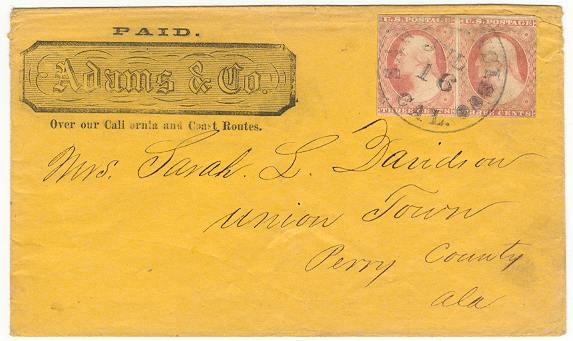 PAID.
Adams & Co.
Over our California and Coast Routes.
U.S. POSTAGE
U.S. POSTAGE
THREE CENTS
THREE CENTS
16
CAL.
Mrs. Sarah. L. Davidson
Union Town
Perry County
Ala